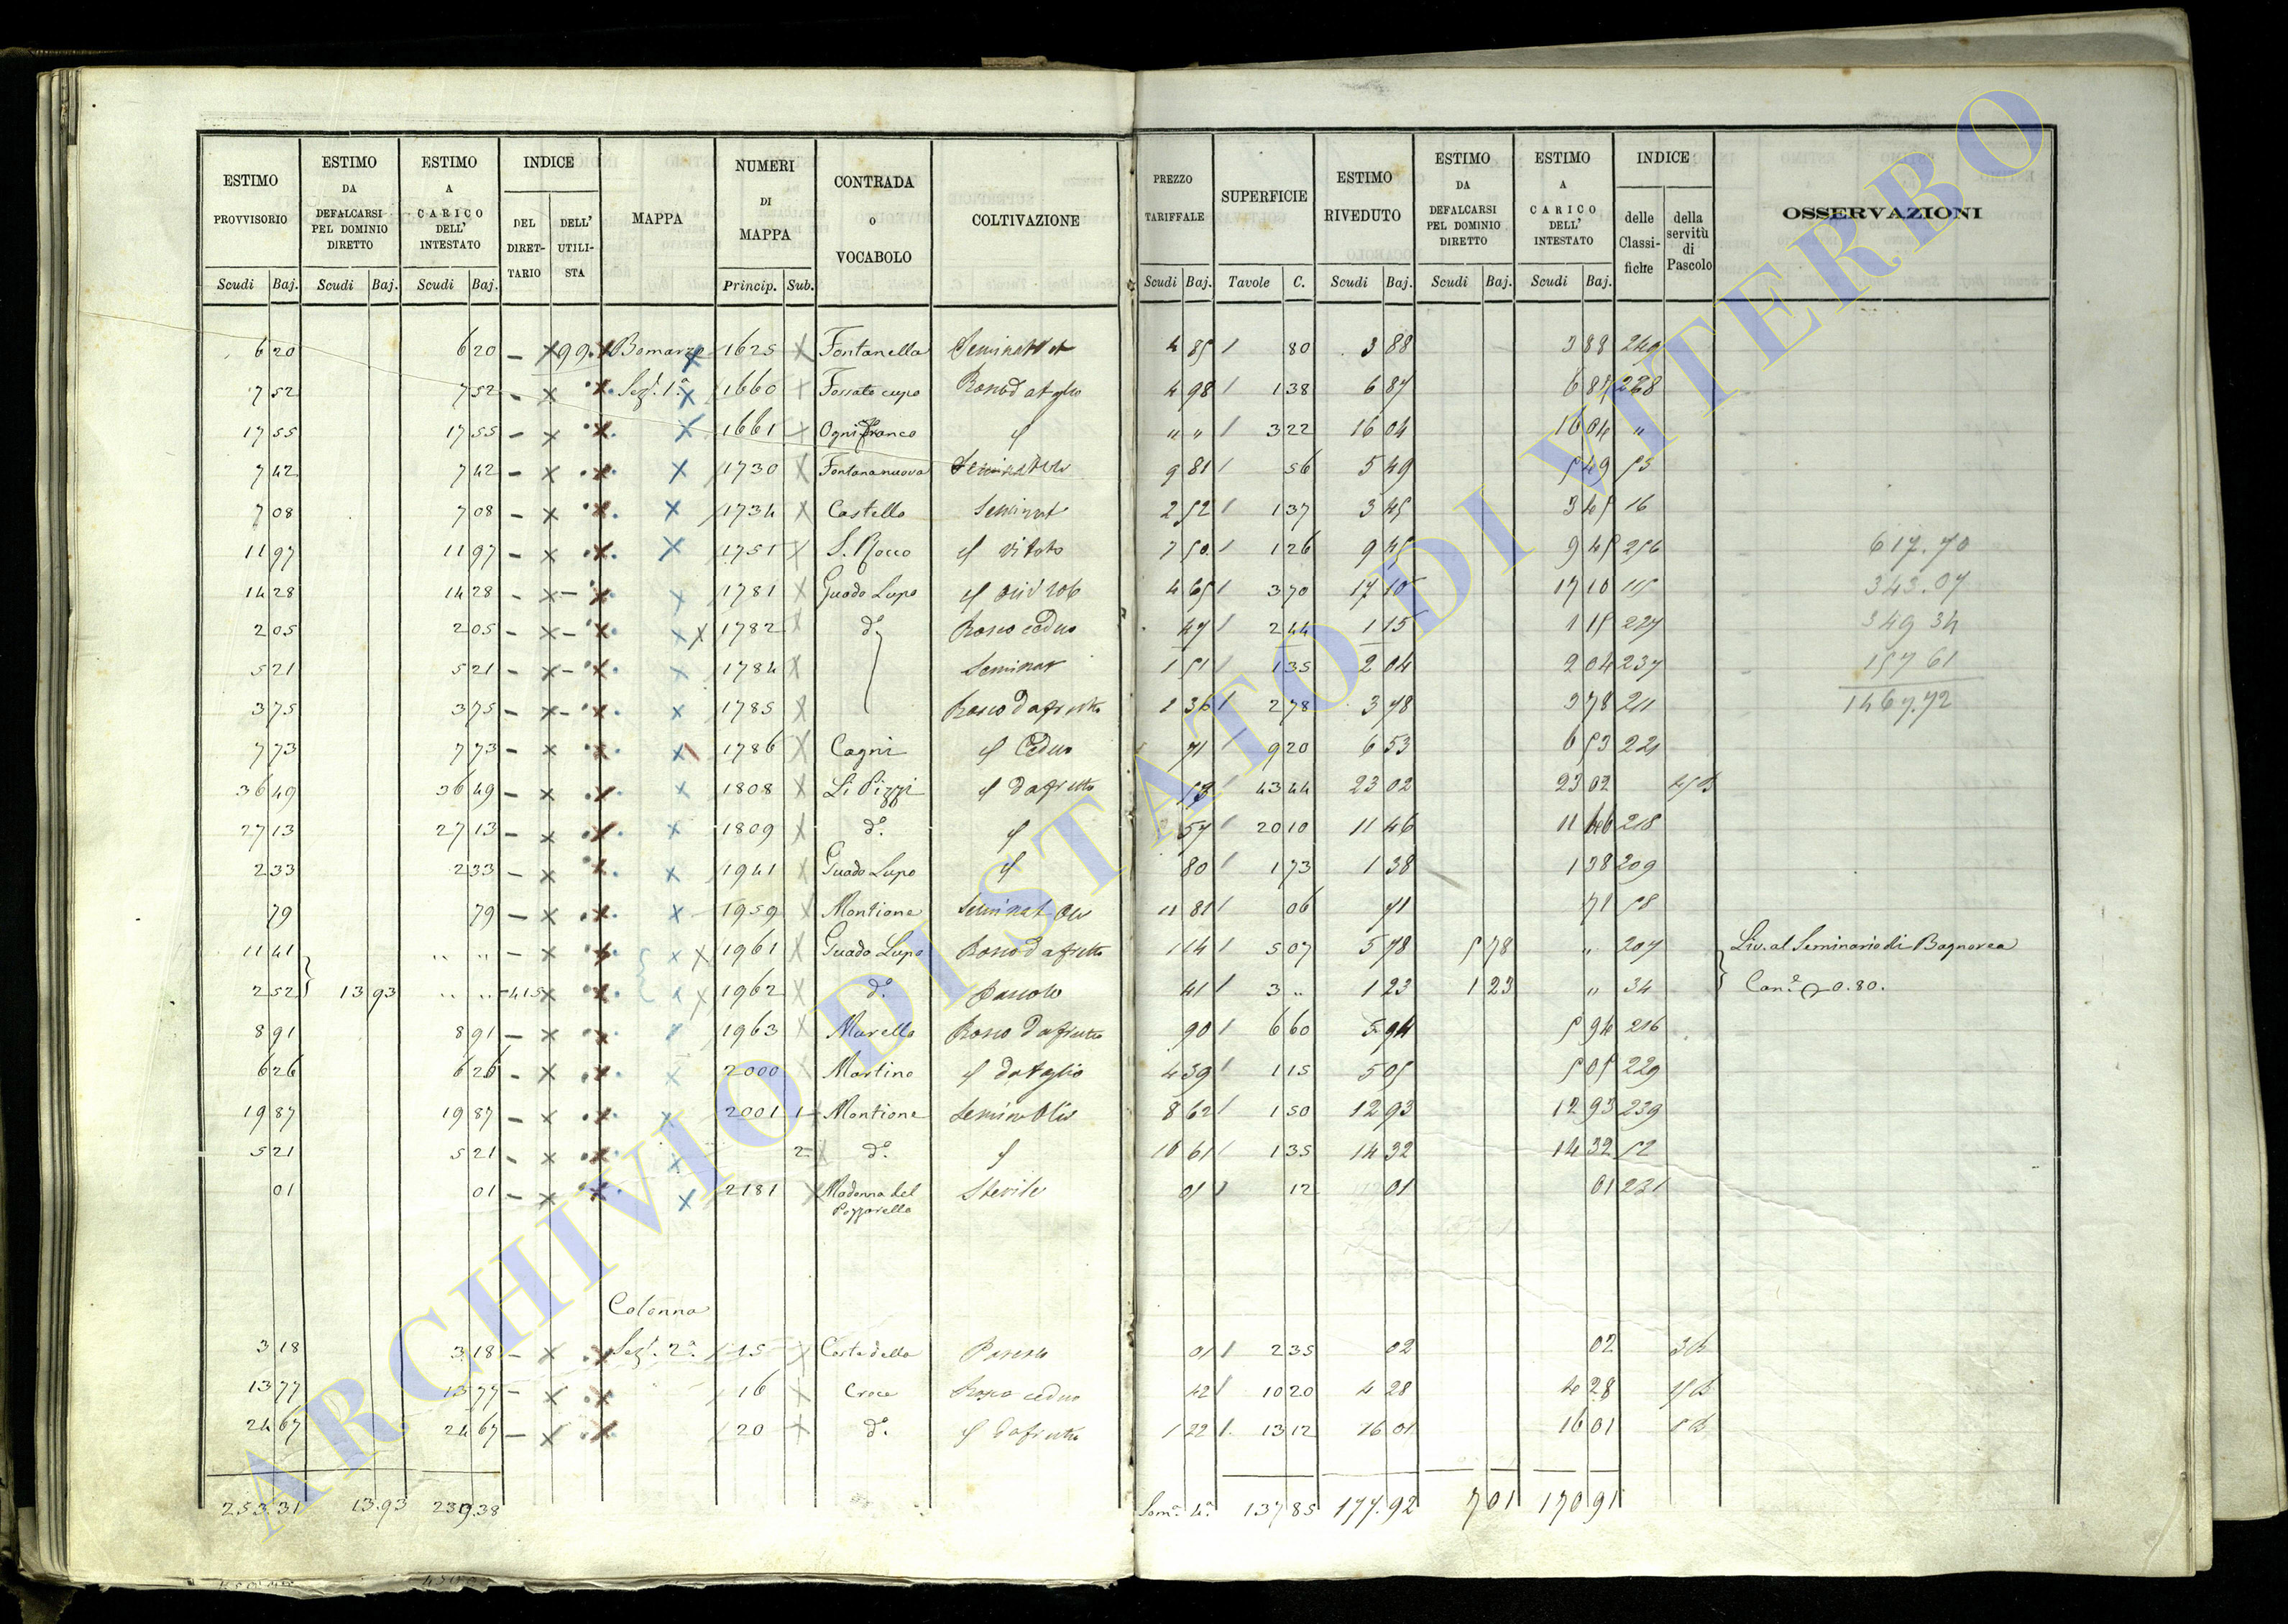 ESTIMO PROVVISORIO Scudi Baj.
ESTIMO DA DEFALCARSI PEL DOMINIO DIRETTO Scudi Baj.
ESTIMO A CARICO DELL' INTESTATO Scudi Baj.
INDICE DEL DIRET-TARIO DELL' UTILI-STA
MAPPA
NUMERI DI MAPPA Princip. Sub.
CONTRADA o VOCABOLO
COLTIVAZIONE
PREZZO TARIFFALE Scudi Baj.
SUPERFICIE Tavole C.
ESTIMO RIVEDUTO Scudi Baj.
ESTIMO DA DEFALCARSI PEL DOMINIO DIRETTO Scudi Baj.
ESTIMO A CARICO DELL' INTESTATO Scudi Baj.
INDICE delle Classi-fiche della servitù di Pascolo
OSSERVAZIONI
6 20 6 20 – 99 Bomarzo 1625 Fontanella 4 85 80 3 88 3 88 249
7 52 7 52 – Sez. 1ª 1660 Fossato cupo 4 98 1 38 6 87 6 87
17 55 17 55 – 1661 Ognifranco " " 3 22 16 04 16 04 "
7 42 7 42 – 1730 Fontananuova 9 81 56 5 49 5 49 53
7 08 7 08 – 1734 Castello Seminat 2 52 1 37 3 45 3 45 16
11 97 11 97 – 1751 S. Rocco vitato 7 50 1 26 9 45 9 45 256
14 28 14 28 – 1781 Guado Lupo 4 65 3 70 17 10 17 10 115
2 05 2 05 – 1782 dº Bosco ceduo 47 2 44 1 15 1 15 227
5 21 5 21 – 1784 Seminat 1 51 1 35 2 04 2 04 237
3 75 3 75 – 1785 Bosco da frutto 1 36 2 78 3 78 3 78 211
7 73 7 73 – 1786 Cagni Ceduo 71 9 20 6 53 6 53 221
36 49 36 49 – 1808 Li Pizzi da frutto 53 43 44 23 02 23 02
27 13 27 13 – 1809 dº 57 20 10 11 46 11 46 218
2 33 2 33 – 1941 Guado Lupo 80 1 73 1 38 1 38 209
79 79 – 1959 Montione Seminat Oliv 11 81 06 71 71 58
11 41 " " – 1961 Guado Lupo Bosco da frutto 1 14 5 07 5 78 5 78 " 207 Liv. al Seminario di Bagnorea
2 52 13 93 " " 415 1962 dº Pascolo 41 3 " 1 23 1 23 " 34 Can.e 0.80.
8 91 8 91 – 1963 Murella Bosco da frutto 90 6 60 5 94 5 94 216
6 26 6 26 – 2000 Martino da taglio 4 39 1 15 5 05 5 05 229
19 87 19 87 – 2001 1 Montione Semin Oliv 8 62 1 50 12 93 12 93 239
5 21 5 21 – 2 dº 10 61 1 35 14 32 14 32 52
01 01 – 2181 Madonna del Pozzarello Sterile 01 12 01 01 231
617.70
343.07
349 34
157 61
1467.72
Colonna
3 18 3 18 – Sez. 2ª 15 Costa della 01 2 35 02 02
13 77 13 77 – 16 Croce Bosco ceduo 42 10 20 4 28 4 28
24 67 24 67 – 20 dº da frutto 1 22 13 12 16 01 16 01
253.31 13.93 239.38 Som.ª 4ª 137 85 177.92 7 01 170 91
ARCHIVIO DI STATO DI VITERBO